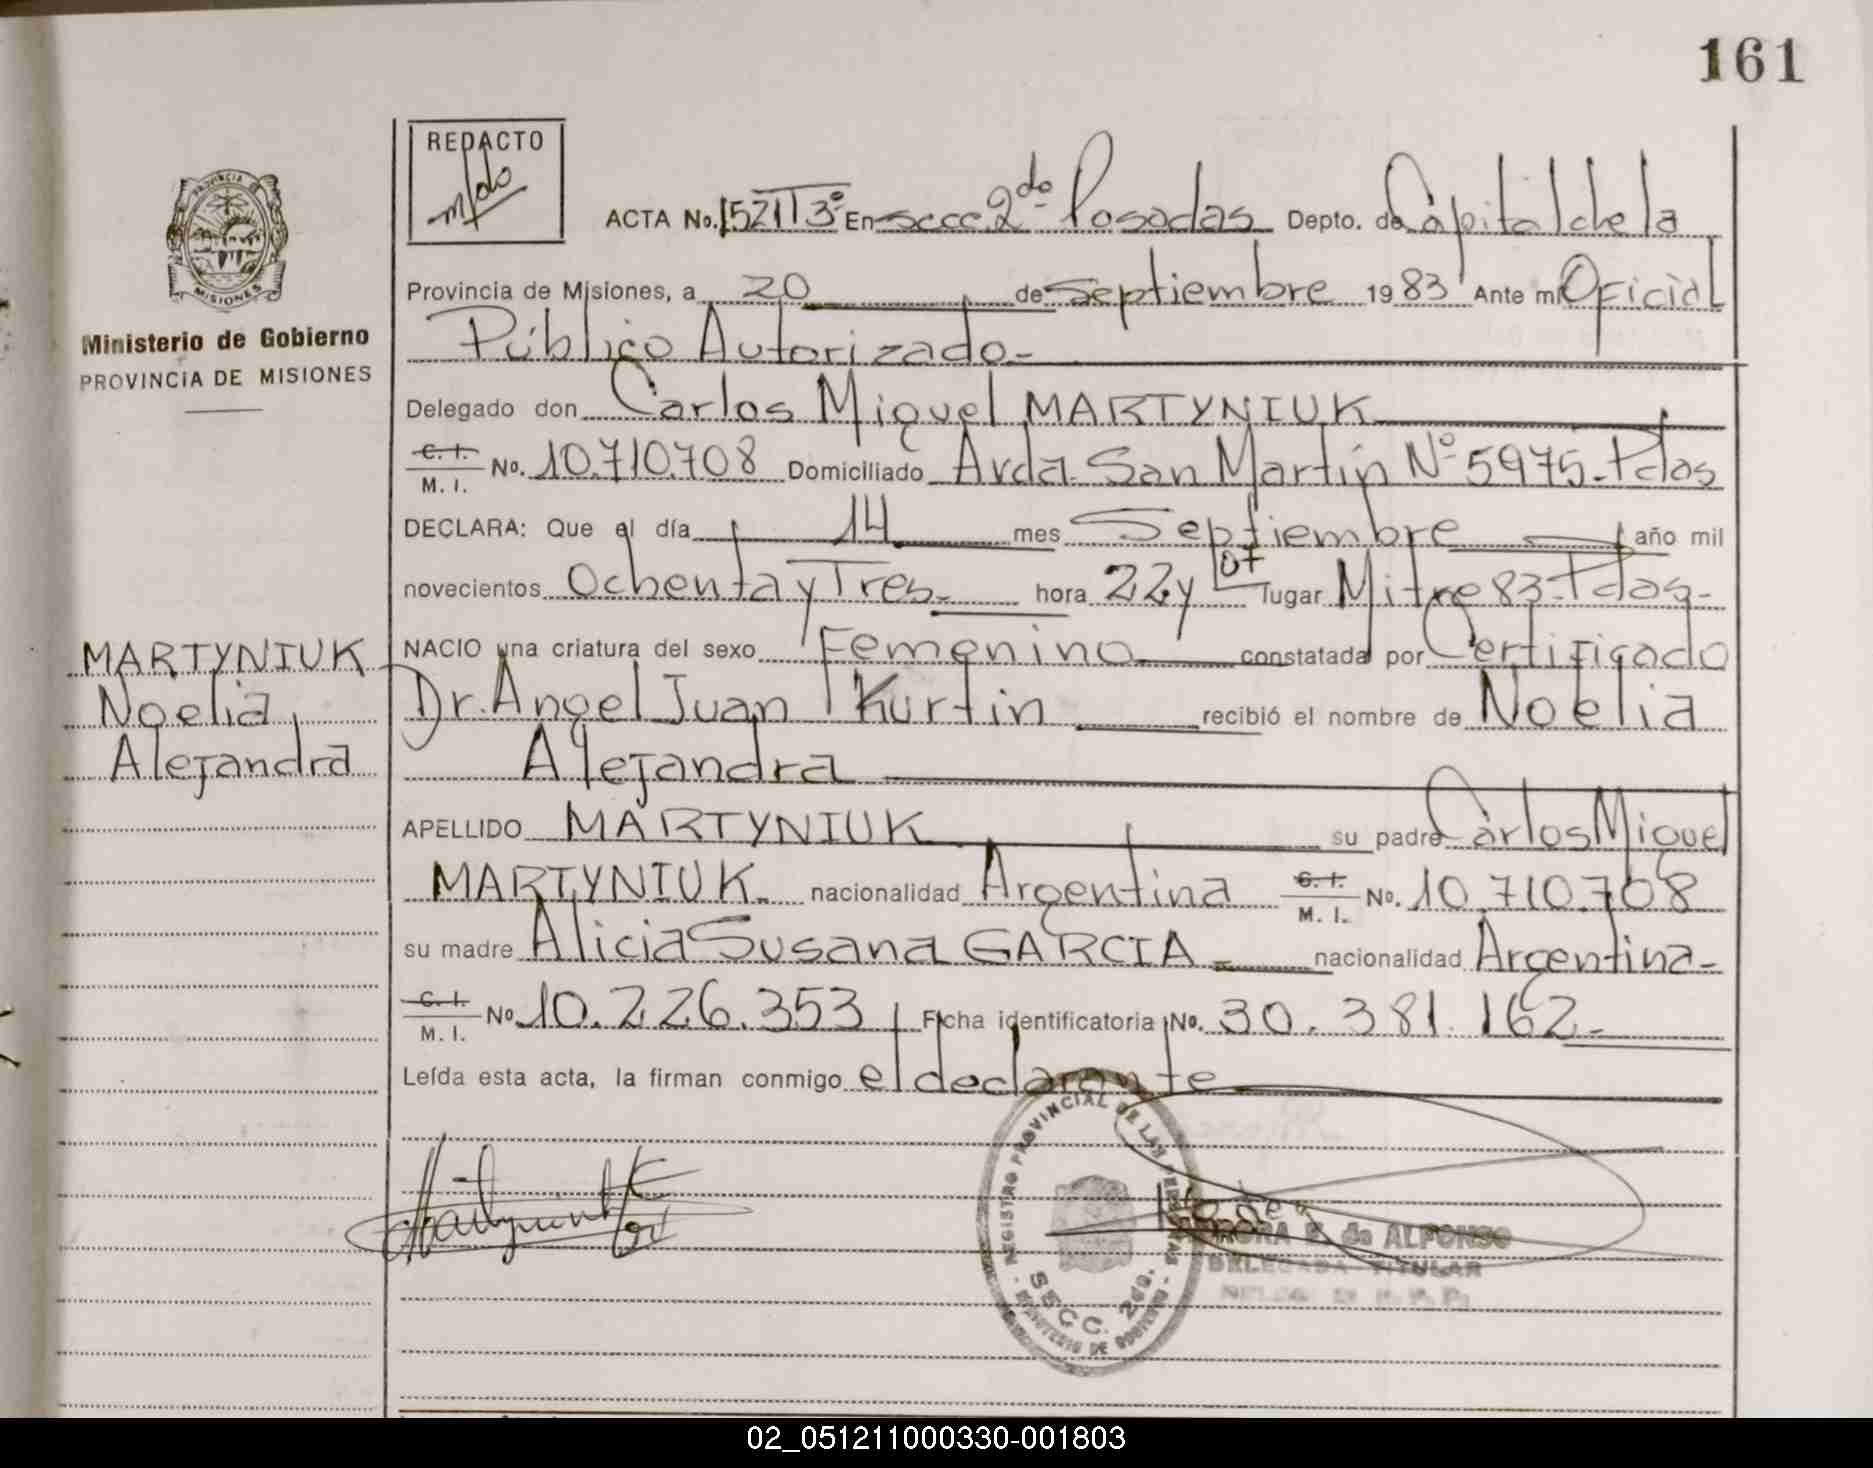 161
REDACTO
ACTA No. 152 T I 3º En secc. 2do Posadas Depto. de Capital de la
Provincia de Misiones, a 20 de Septiembre 1983 Ante mi Oficial
Público Autorizado.-
PROVINCIA DE MISIONES
Ministerio de Gobierno
PROVINCIA DE MISIONES
Delegado don Carlos Miguel MARTYNIUK
C. I. M. I. No. 10.710.708 Domiciliado Avda. San Martin Nº 5975-Pdas
DECLARA: Que el día 14 mes Septiembre año mil
novecientos Ochenta y Tres.- hora 22 y 07 lugar Mitre 83-Pdas.-
NACIO una criatura del sexo Femenino constatada por Certificado
Dr. Angel Juan Kurtin recibió el nombre de Noelia
Alejandra
MARTYNIUK
Noelia,
Alejandra
APELLIDO MARTYNIUK su padre Carlos Miguel
MARTYNIUK.- nacionalidad Argentina C. I. M. I. No. 10.710.708
su madre Alicia Susana GARCIA nacionalidad Argentina-
C. I. M. I. No 10.226.353 Ficha identificatoria No. 30.381.162.-
Leída esta acta, la firman conmigo el declarante
REGISTRO PROVINCIAL DE LAS PERSONAS
SECC. 2da.
MINISTERIO DE GOBIERNO
E. de ALFONSO
DELEGADA TITULAR
02_051211000330-001803